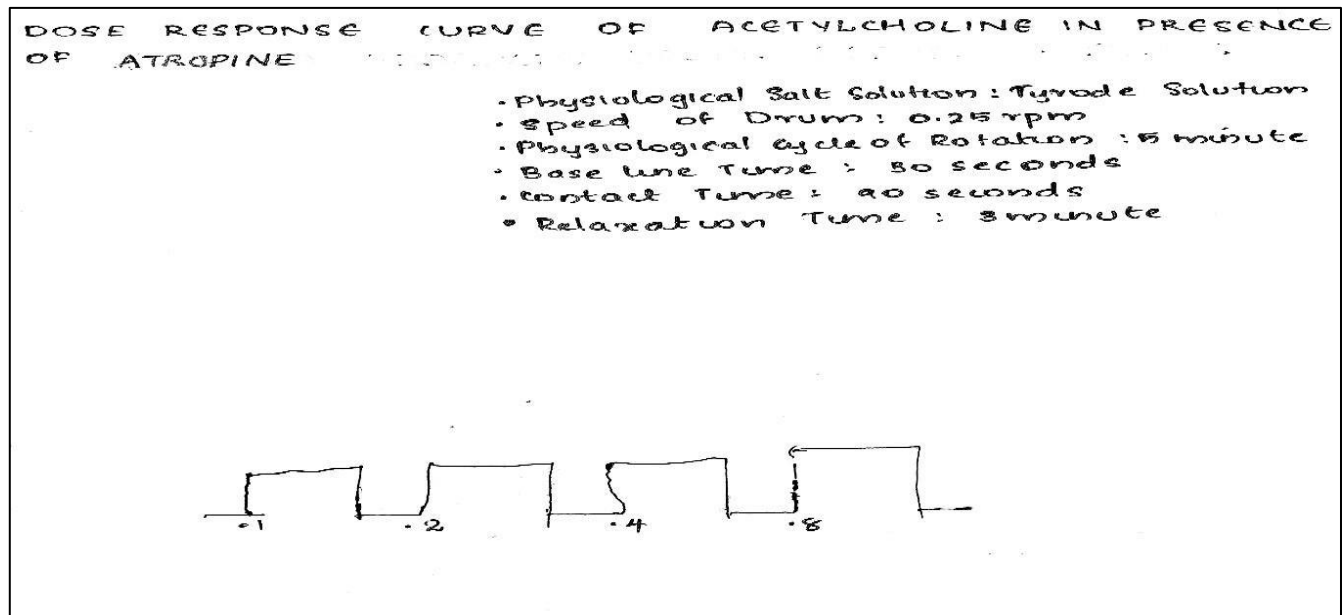 DOSE RESPONSE CURVE OF ACETYLCHOLINE IN PRESENCE
OF ATROPINE
• Physiological Salt Solution : Tyrode Solution
• Speed of Drum : 0.25 rpm
• Physiological cycle of Rotation : 5 minute
• Base line Time : 30 seconds
• Contact Time : 90 seconds
• Relaxation Time : 3 minute
.1 .2 .4 .8